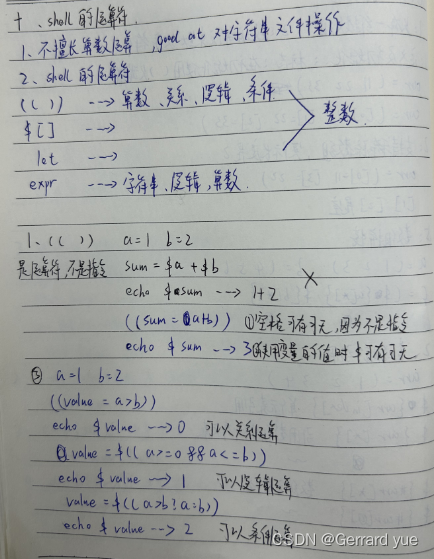 十、shell 的运算符
1、不擅长算数运算,good at 对字符串 文件操作
2、shell 的运算符
(( )) ---> 算数、关系、逻辑、条件
$[] --->
整数
let --->
expr ---> 字符串、逻辑、算数.
1、(( )) a=1 b=2
是运算符,不是指令 sum = $a + $b
echo $sum ---> 1+2 ×
((sum = a+b)) ①空格可有可无,因为不是指令
echo $sum ---> 3 ②使用变量的值时 $ 可有可无
③ a=1 b=2
((value = a>b))
echo $value ---> 0 可以关系运算
value = $(( a>=0 && a<=b))
echo $value ---> 1 可以逻辑运算
value = $(( a>b?a:b))
echo $value ---> 2 可以条件运算
CSDN @Gerrard yue